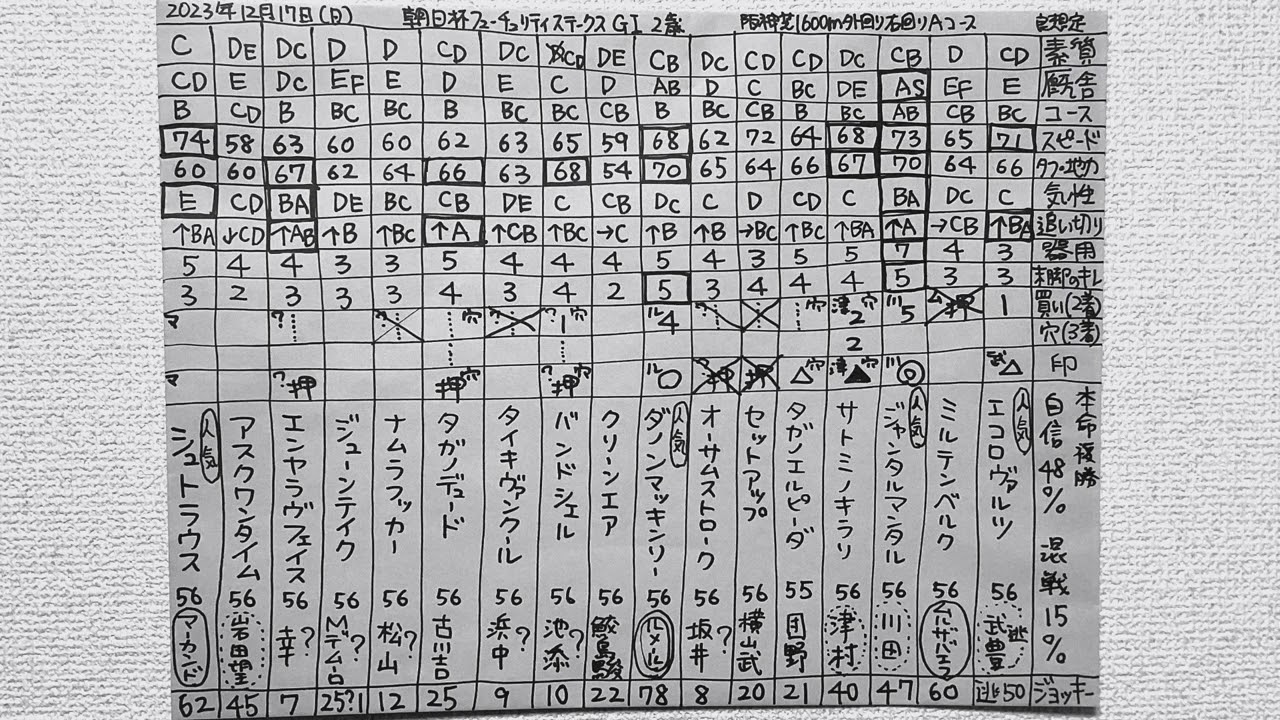 2023年12月17日(日) 朝日杯フューチュリティステークス GI 2歳 阪神芝1600m外回り右回りAコース 仮想定
C DE DC D D CD DC CD DE CB DC CD CD DC CB D CD 素質
CD E DC EF E D E C D AB D C BC DE AS EF E 厩舎
B CD B BC BC B BC BC CB B BC CB B BC AB CB BC コース
74 58 63 60 60 62 63 65 59 68 62 72 64 68 73 65 71 スピード
60 60 67 62 64 66 63 68 54 70 65 64 66 67 70 64 66 タフ・地力
E CD BA DE BC CB DE C CB DC C D CD C BA DC C 気性
↑BA ↓CD ↑AB ↑B ↑BC ↑A ↑CB ↑BC →C ↑B ↑B →BC ↑BC ↑BA ↑A →CB ↑BA 追い切り
5 4 4 3 3 5 4 4 4 5 4 3 5 5 7 4 3 器用
3 2 3 3 3 4 3 4 2 5 3 4 4 4 5 3 3 末脚のキレ
マ ? ? 穴 ? ? 1 穴 ル 4 ? 穴 津 2 穴 川 5 ム 押 1 買い(2着)
2 穴(3着)
マ ? 押 押 穴 ? 押 穴 ル ○ ? 押 押 △ 穴 津 ▲ 穴 川 ◎ 武 △ 印
人気 シュトラウス 56 マーカンド
アスクワンタイム 56 岩田望
エンヤラヴフェイス 56 幸?
ジューンテイク 56 Mデムーロ?
ナムラフッカー 56 松山
タガノデュード 56 古川吉
タイキヴァンクール 56 浜中?
バンドシェル 56 池添?
クリーンエア 56 鮫島駿
人気 ダノンマッキンリー 56 ルメール
オーサムストローク 56 坂井?
セットアップ 56 横山武
タガノエルピーダ 55 団野
サトミノキラリ 56 津村
人気 ジャンタルマンタル 56 川田
ミルテンベルク 56 ムルザバエフ
人気 エコロヴァルツ 56 武豊 逃
本命複勝
自信48% 混戦15%
62 45 7 25?1 12 25 9 10 22 78 8 20 21 40 47 60 逃50 ジョッキー